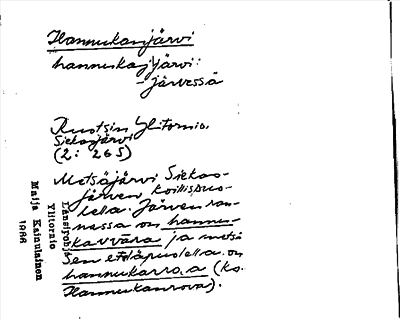 Hannukanjärvi
hannukajjärvi:
-järvessä
Ruotsin Ylitornio,
Siekasjärvi
(2: 265)
Metsäjärvi Siekas-
järven koillispuo-
lella. Järven ran-
nassa on hannu-
kavvāra ja metsä
sen eteläpuolella on
hannukarro.a (ks.
Hannukanrova).
Länsipohja
Ylitornio
Maija Kainulainen
1966